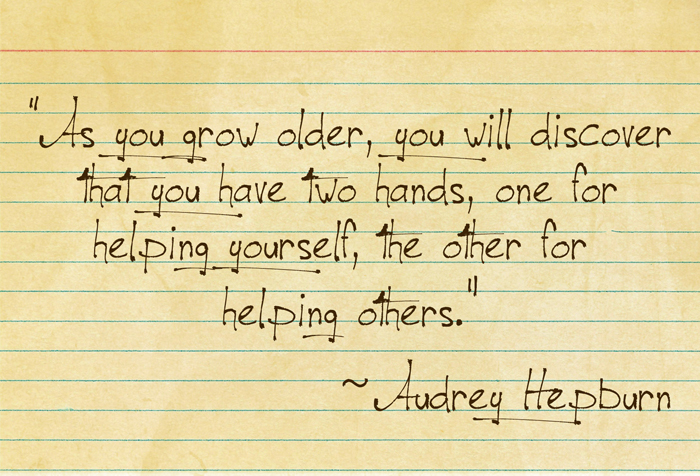 "As you grow older, you will discover
that you have two hands, one for
helping yourself, the other for
helping others."
~Audrey Hepburn